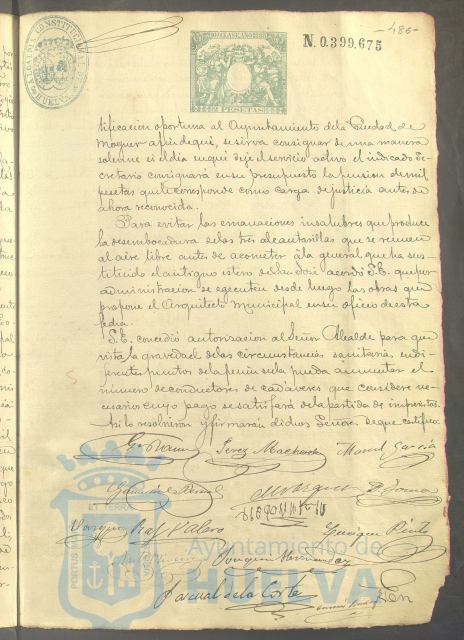 486-
N.0.399.675
PESETAS
tificacion oportuna al Ayuntamiento de la Ciudad de
Moguer a fin de qui, se sirva consignar de una manera
solemne si el dia en que deje el servicio activo el indicado Se-
cretario consignará en su presupuesto la pension de mil
pesetas que le corresponde como carga de justicia antes de
ahora reconocida.
Para evitar las emanaciones insalubres que produce
la desembocadura de las tres alcantarillas que se reunen
al aire libre antes de acometer á la general que ha sus-
tituido el antiguo estero de las acordó S.E. que por
administracion se ejecuten desde luego las obras que
propone el Arquitecto Municipal en su oficio de esta
fecha.
S.E. concedió autorizacion al Señor Alcalde para que
vista la gravedad de las circunstancias sanitarias, en di-
ferentes puntos de la peninsula pueda aumentar el
número de conductores de cadáveres que considere ne-
cesarios cuyo pago se satisfará de la partida de imprevistos.
Asi lo resolvieron y firmarán dichos Señores de que certifico.
Perez Machado Manuel Garcia
Vazquez
Joaquin Hernandez
Pascual de la Corte
ET TERRÆ
PORTUS
Ayuntamiento de
HUELVA